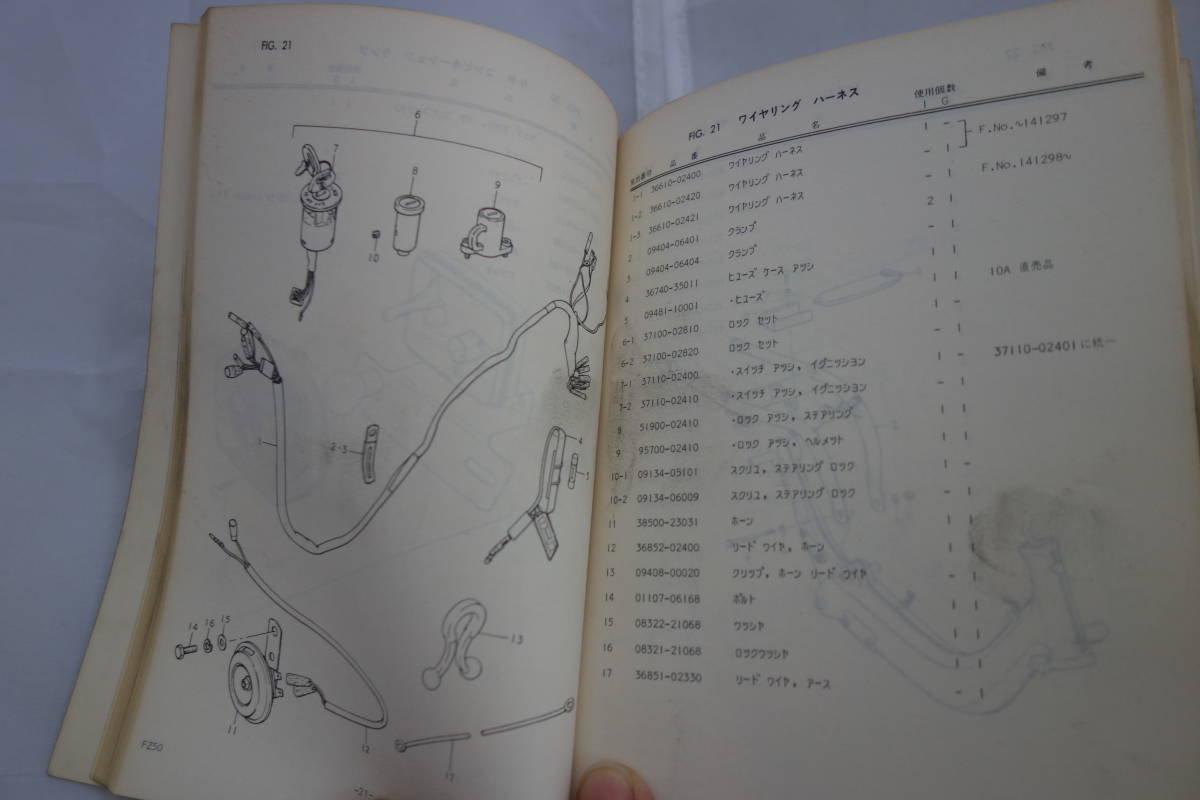 FIG. 21
6
7
8
9
10
1
2-3
4
5
14
16
15
13
11
12
17
FZ50
-21-
FIG. 21 ワイヤリング ハーネス
品 番 品 名 使用個数 備 考
I G
1-1 36610-02400 ワイヤリング ハーネス 1 - F.No.~141297
1-2 36610-02420 ワイヤリング ハーネス - 1
1-3 36610-02421 ワイヤリング ハーネス - 1 F.No.141298~
2 09404-06401 クランプ 2 1
3 09404-06404 クランプ
4 36740-35011 ヒューズ ケース アッシ
5 09481-10001 ・ヒューズ 1 1 10A 直売品
6-1 37100-02810 ロック セット 1 -
6-2 37100-02820 ロック セット - 1
7-1 37110-02400 ・スイッチ アッシ, イグニッション 1 - 37110-02401に統一
7-2 37110-02410 ・スイッチ アッシ, イグニッション - 1
8 51900-02410 ・ロック アッシ, ステアリング
9 95700-02410 ・ロック アッシ, ヘルメット
10-1 09134-05101 スクリユ, ステアリング ロック 1 -
10-2 09134-06009 スクリユ, ステアリング ロック - 1
11 38500-23031 ホーン 1 1
12 36852-02400 リード ワイヤ, ホーン 1 1
13 09408-00020 クリップ, ホーン リード ワイヤ - 1
14 01107-06168 ボルト 1 1
15 08322-21068 ワッシヤ 1 1
16 08321-21068 ロックワッシヤ 1 1
17 36851-02330 リード ワイヤ, アース - 1